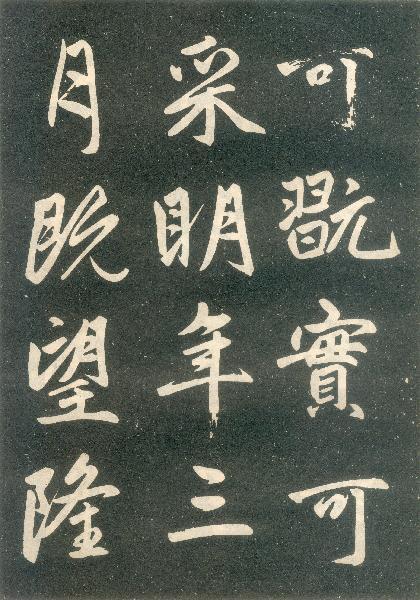 可翫實可
采明年三
月既望隆